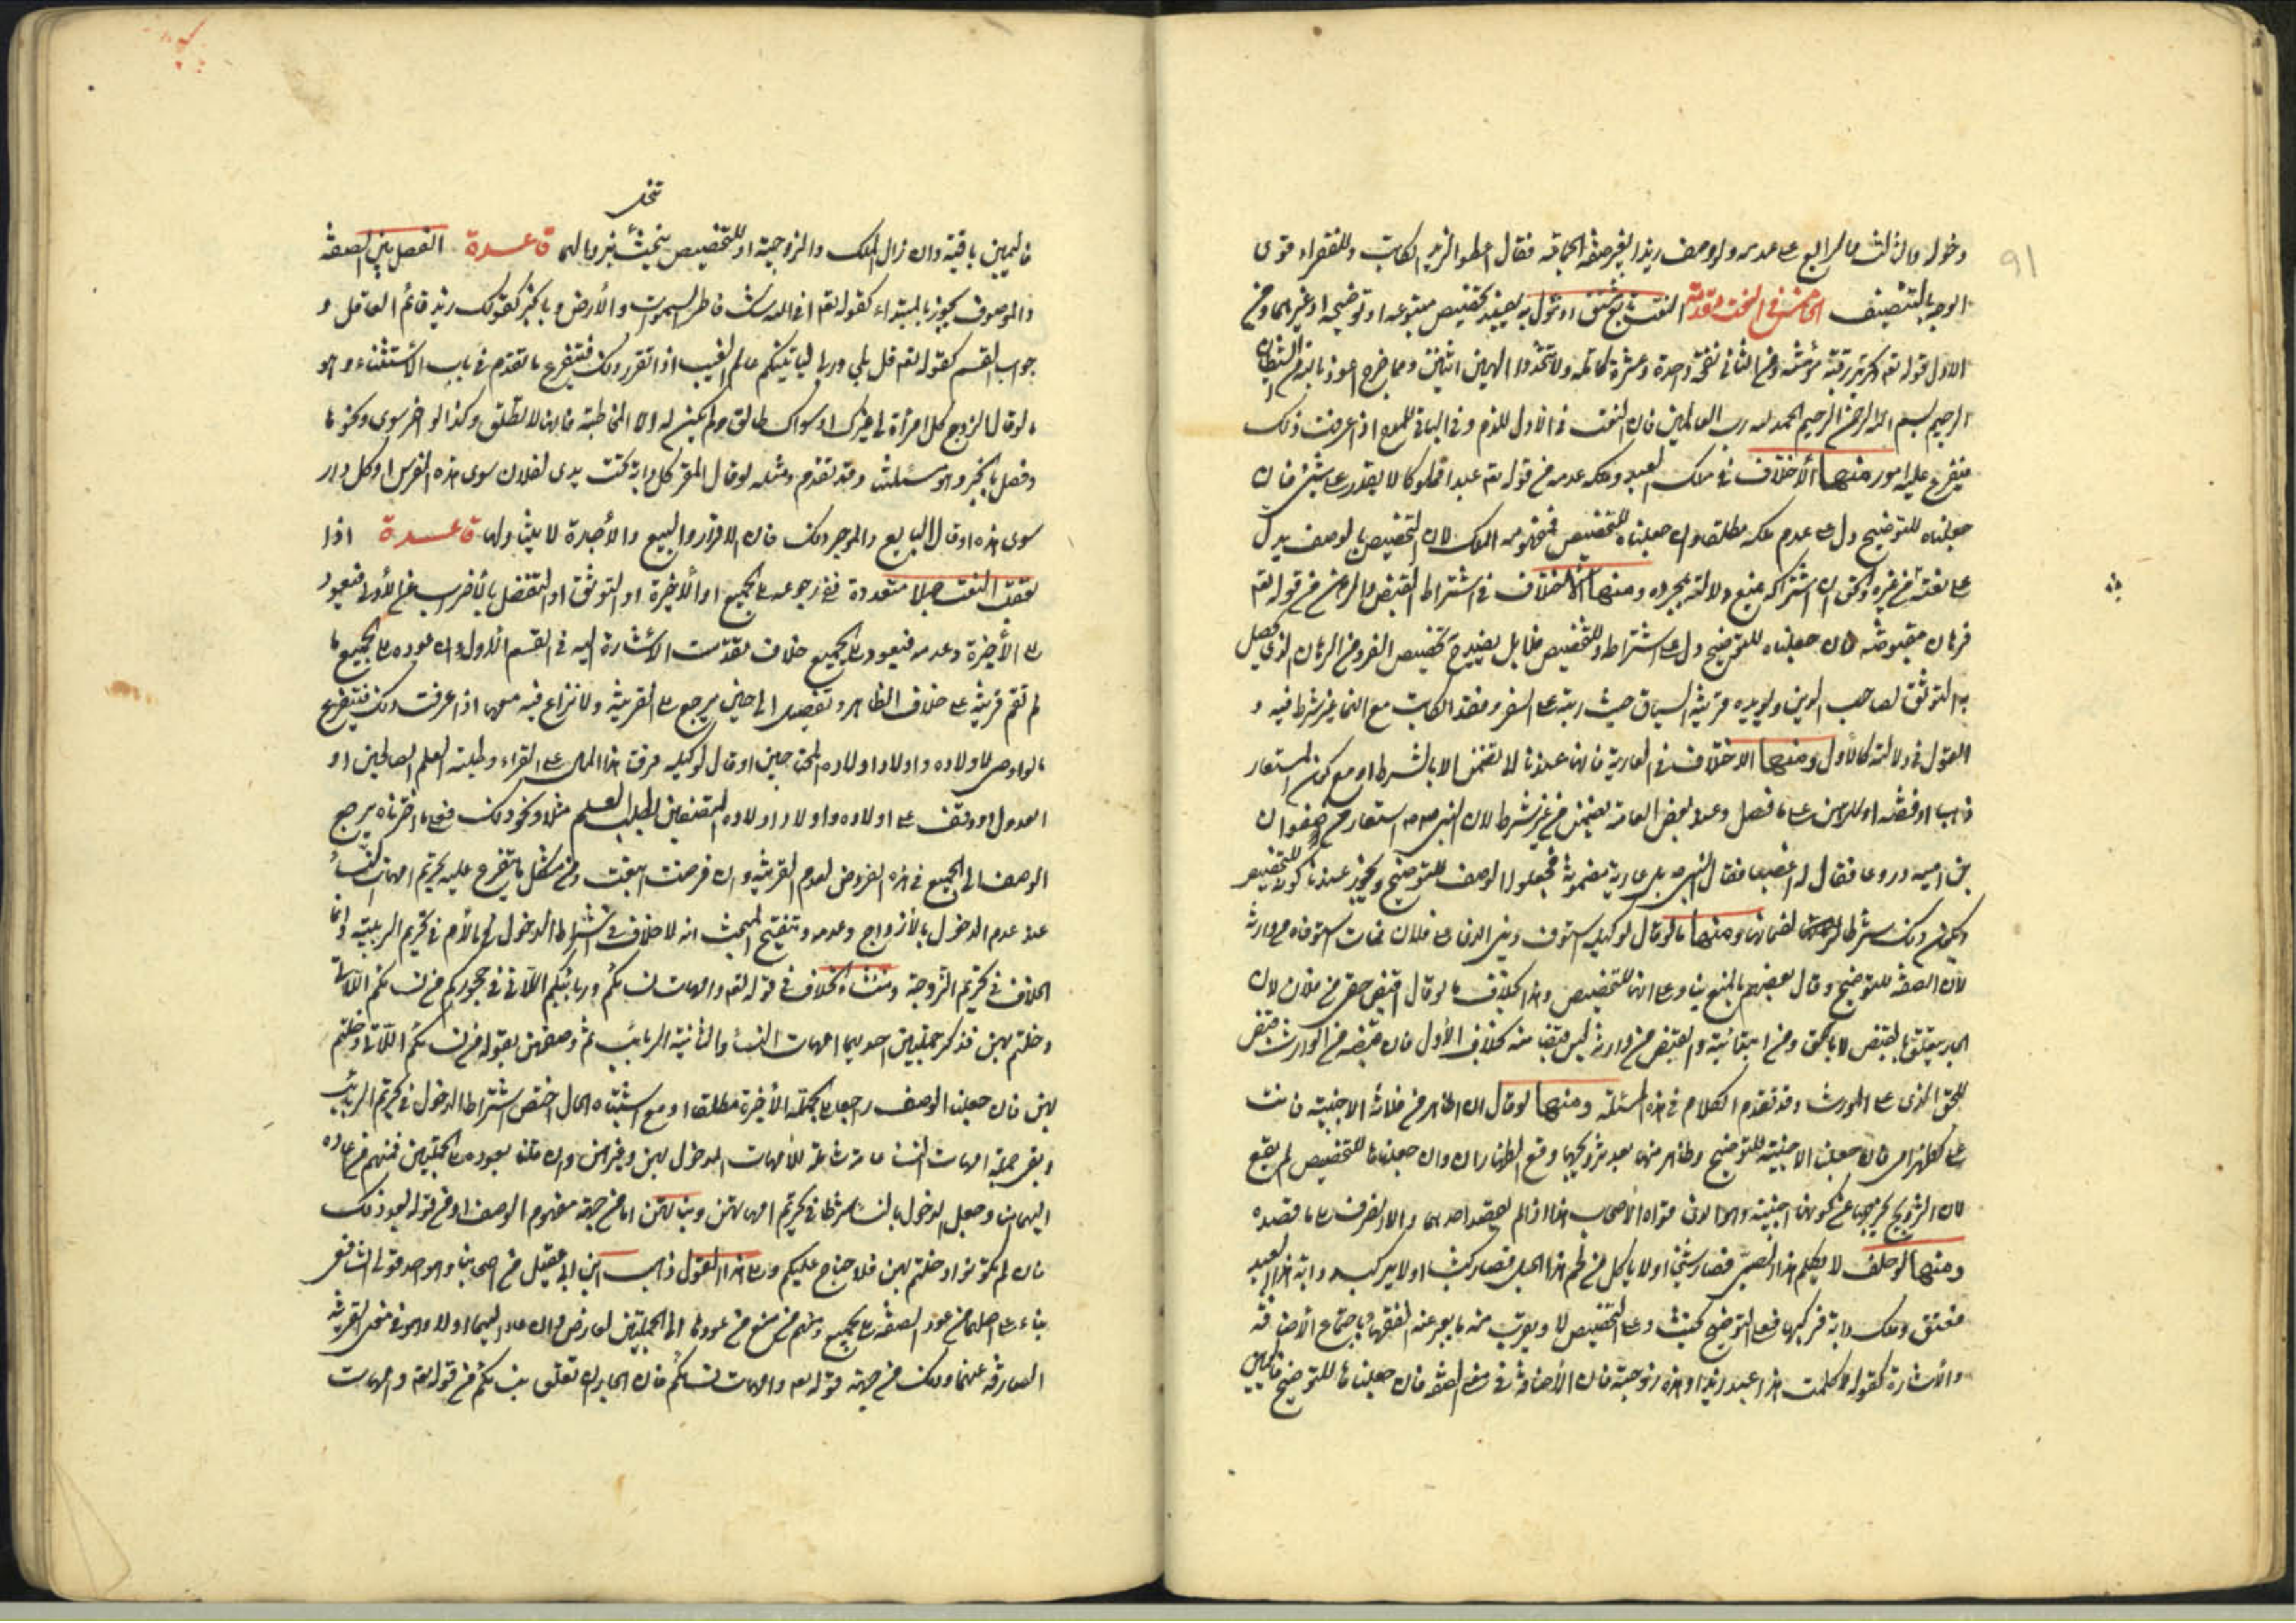 91
دخوله والثالث والرابع على عدمه ولو وصف زيدا بغير صفة الحاقه فقال اعطوا لزيد الكاتب وللفقراء قوى
الوجه بالتنصيف الخامس في النعت مقدمة النعت تابع مشتق او مؤول به يفيد تخصيص متبوعه او توضيحه او غيرهما ومن
الاول قوله تعم فتحرير رقبة مؤمنة ومن الثاني نفخة واحدة وعشرة كاملة ولا تتخذوا الهين اثنين ومما خرج اعوذ بالله من الشيطان
الرجيم بسم الله الرحمن الرحيم الحمد لله رب العالمين فان النعت في الاول للذم وفي الباقي للمدح اذا عرفت ذلك
فيتفرع عليه امور منها الاختلاف في ملك العبد وملكه عدمه من قوله تعم عبدا مملوكا لا يقدر على شيء فان
جعلناه للتوضيح دل على عدم ملكه مطلقا وان جعلناه للتخصيص فمفهومه الملك لان التخصيص بالوصف يدل
على نفيه عن غيره والحق ان اشتراكه يمنع دلالته بمجرده ومنها الاختلاف في اشتراط القبض بالرهن من قوله تعم
فرهان مقبوضة فان جعلناه للتوضيح دل على اشتراطه وللتخصيص فلا بل يفيد ح تخصيص الفرد من الرهان الذي يحصل
به التوثق لصاحب الدين ويؤيده قرينة السياق حيث رتبه على السفر وفقد الكاتب مع انهما غير شرط فيه و
القول في دلالته كالاول ومنها الاختلاف في العارية فانها عندنا لا تضمن الا بالشرط او مع كون المستعار
ذهبا او فضة او للرهن على ما فصل وعند بعض العامة تضمن من غير شرط لان النبي ص استعار من صفوان
بن امية دروعا فقال له اغصبا فقال النبي ص بل عارية مضمونة فجعلوا الوصف للتوضيح ونحن عندنا كونه للتخصيص
ويكون ذلك شرطا لضمانها ومنها ما لو قال لوكيله استوف ديني الذي على فلان فمات استوفاه من وارثه
لان الصفة للتوضيح وقال بعضهم بالمنع بناء على انها للتخصيص وهذا بخلاف ما لو قال اقبض حقي من فلان لان
الجار يتعلق بالقبض لا بالحق ومن ابتدائية والقبض من وارثه ليس قبضا منه بخلاف الاول فان قبضه من الوارث قبض
للحق الذي على المورث وقد تقدم الكلام في هذه المسئلة ومنها لو قال ان اظاهر من فلانة الاجنبية فانت
على كظهر امي فان جعلنا الاجنبية للتوضيح وظاهر منها بعد تزويجها وقع الظهاران وان جعلناها للتخصيص لم يقع
لان التزويج يخرجها عن كونها اجنبية والذي قواه الاصحاب هذا اذا لم يقصد احدهما والا انصرف الى ما قصده
ومنها لو حلف لا يكلم هذا الصبي فصار شيخا او لا ياكل من لحم هذا الحمل فصار كبشا او لا يركب دابة هذا العبد
فعتق وملك دابة فركبها فعلى التوضيح يحنث وعلى التخصيص لا ويقرب منه ما يعبر عنه الفقهاء باجتماع الاضافة
والاشارة كقوله لا كلمت هذا عبد زيد او هذه زوجته فان الاضافة في معنى الصفة فان جعلناها للتوضيح فاليمين
فاليمين باقية وان زال الملك والزوجية او للتخصيص تنحل فيحنث بزوالهما قاعدة الفصل بين الصفة
والموصوف يجوز بالمبتداء كقوله تعم افي الله شك فاطر السموات والارض وبالخبر كقولك زيد قائم العاقل و
جواب القسم كقوله تعم قل بلى وربي لتاتينكم عالم الغيب اذا تقرر ذلك فيتفرع ما تقدم في باب الاستثناء وهو
ما لو قال الزوج كل امراة لي غيرك او سواك طالق ولم يكن له الا المخاطبة فانها لا تطلق وكذا لو اخر سوى ونحوها
وفصل بالخبر وهو مسئلتنا وقد تقدم ومثله لو قال المقر كل دابة تحت يدي لفلان سوى هذه الفرس او كل دار
سوى هذه او قال البايع والموجر ذلك فان الاقرار والبيع والاجرة لا يتناولها قاعدة اذا
تعقب النعت جملا متعددة ففي رجوعه الى الجميع او الاخيرة او التوقف او التفصيل بالاضراب عن الاولى فيعود
الى الاخيرة وعدمه فيعود الى الجميع خلاف تقدمت الاشارة اليه في القسم الاول وان عوده الى الجميع ما
لم تقم قرينة على خلاف الظاهر وتفصيل الى حين يرجع الى القرينة ولا نزاع فيه معها اذا عرفت ذلك فيتفرع
ما لو اوصى لاولاده واولاد اولاده المحتاجين او قال لوكيله فرقت هذا المال على الفقراء وطلبة العلم الصالحين او
العدول او وقف على اولاده واولاد اولاده المتصفين بطلب العلم مثلا ونحو ذلك فعلى ما اخترناه يرجع
الوصف الى الجميع في هذه الفروض لعدم القرينة وان فرضت اتبعت ومن مشكل ما يتفرع عليه تحريم امهات النساء
عند عدم الدخول بالازواج وعدمه وتنقيح المبحث انه لا خلاف في اشتراط الدخول بالام في تحريم الربيبة وانما
الخلاف في تحريم الزوجة ومنشاء الخلاف في قوله تعم وامهات نسائكم وربائبكم اللاتي في حجوركم من نسائكم اللاتي
دخلتم بهن فذكر جملتين احديهما امهات النساء والثانية الربائب ثم وصفهن بقوله من نسائكم اللاتي دخلتم
بهن فان جعلنا الوصف راجعا الى الجملة الاخيرة مطلقا او مع اشتباه الحال اختص اشتراط الدخول في تحريم الربائب
وبقى جملة امهات النساء عامة شاملة للامهات المدخول بهن وغيرهن وان قلنا بعوده الى الجملتين فمنهم من اعاده
اليهما هنا وجعل الدخول بالنساء شرطا في تحريم امهاتهن وبناتهن اما من جهة مفهوم الوصف او من قوله بعد ذلك
فان لم تكونوا دخلتم بهن فلا جناح عليكم والى هذا القول ذهب ابن ابي عقيل من اصحابنا وهو احد قولي الشافعي
بناء على اصلهما من عود الصفة الى الجميع ومنهم من منع من عودها الى الجملتين لعارض وان عاد اليهما لولاه وهو في معنى القرينة
الصارفة عنهما وذلك من جهة قوله تعم وامهات نسائكم فان الجار ان تعلق بنسائكم من قوله تعم وامهات